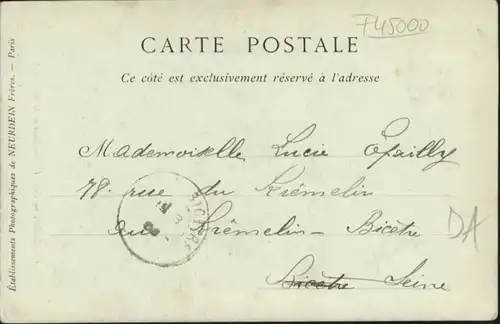 F45000
CARTE POSTALE
Ce côté est exclusivement réservé à l'adresse
Mademoiselle Lucie
78. rue du Kremelin
au Krêmelin - Bicêtre
Bicêtre Seine
DA
Établissements Photographiques de NEURDEIN Frères. — Paris